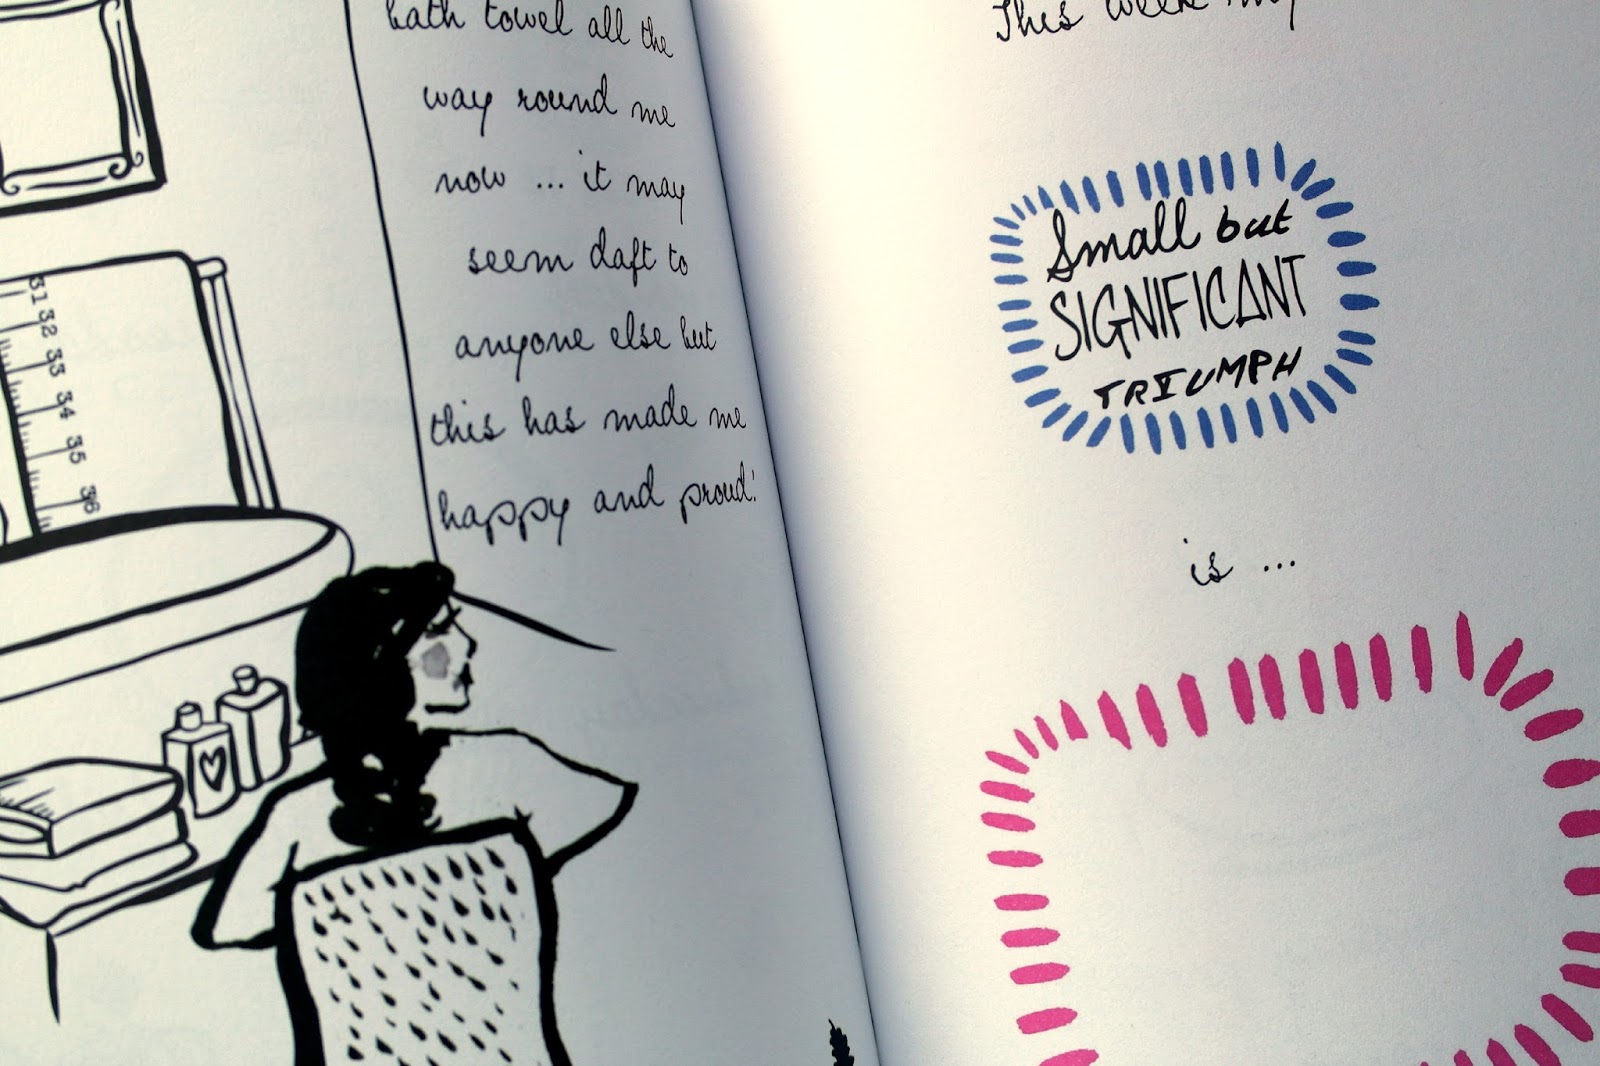 bath towel all the
way round me
now ... it may
seem daft to
anyone else but
this has made me
happy and proud!
31 32 33 34 35 36
This week my
Small but
SIGNIFICANT
TRIUMPH
is ...